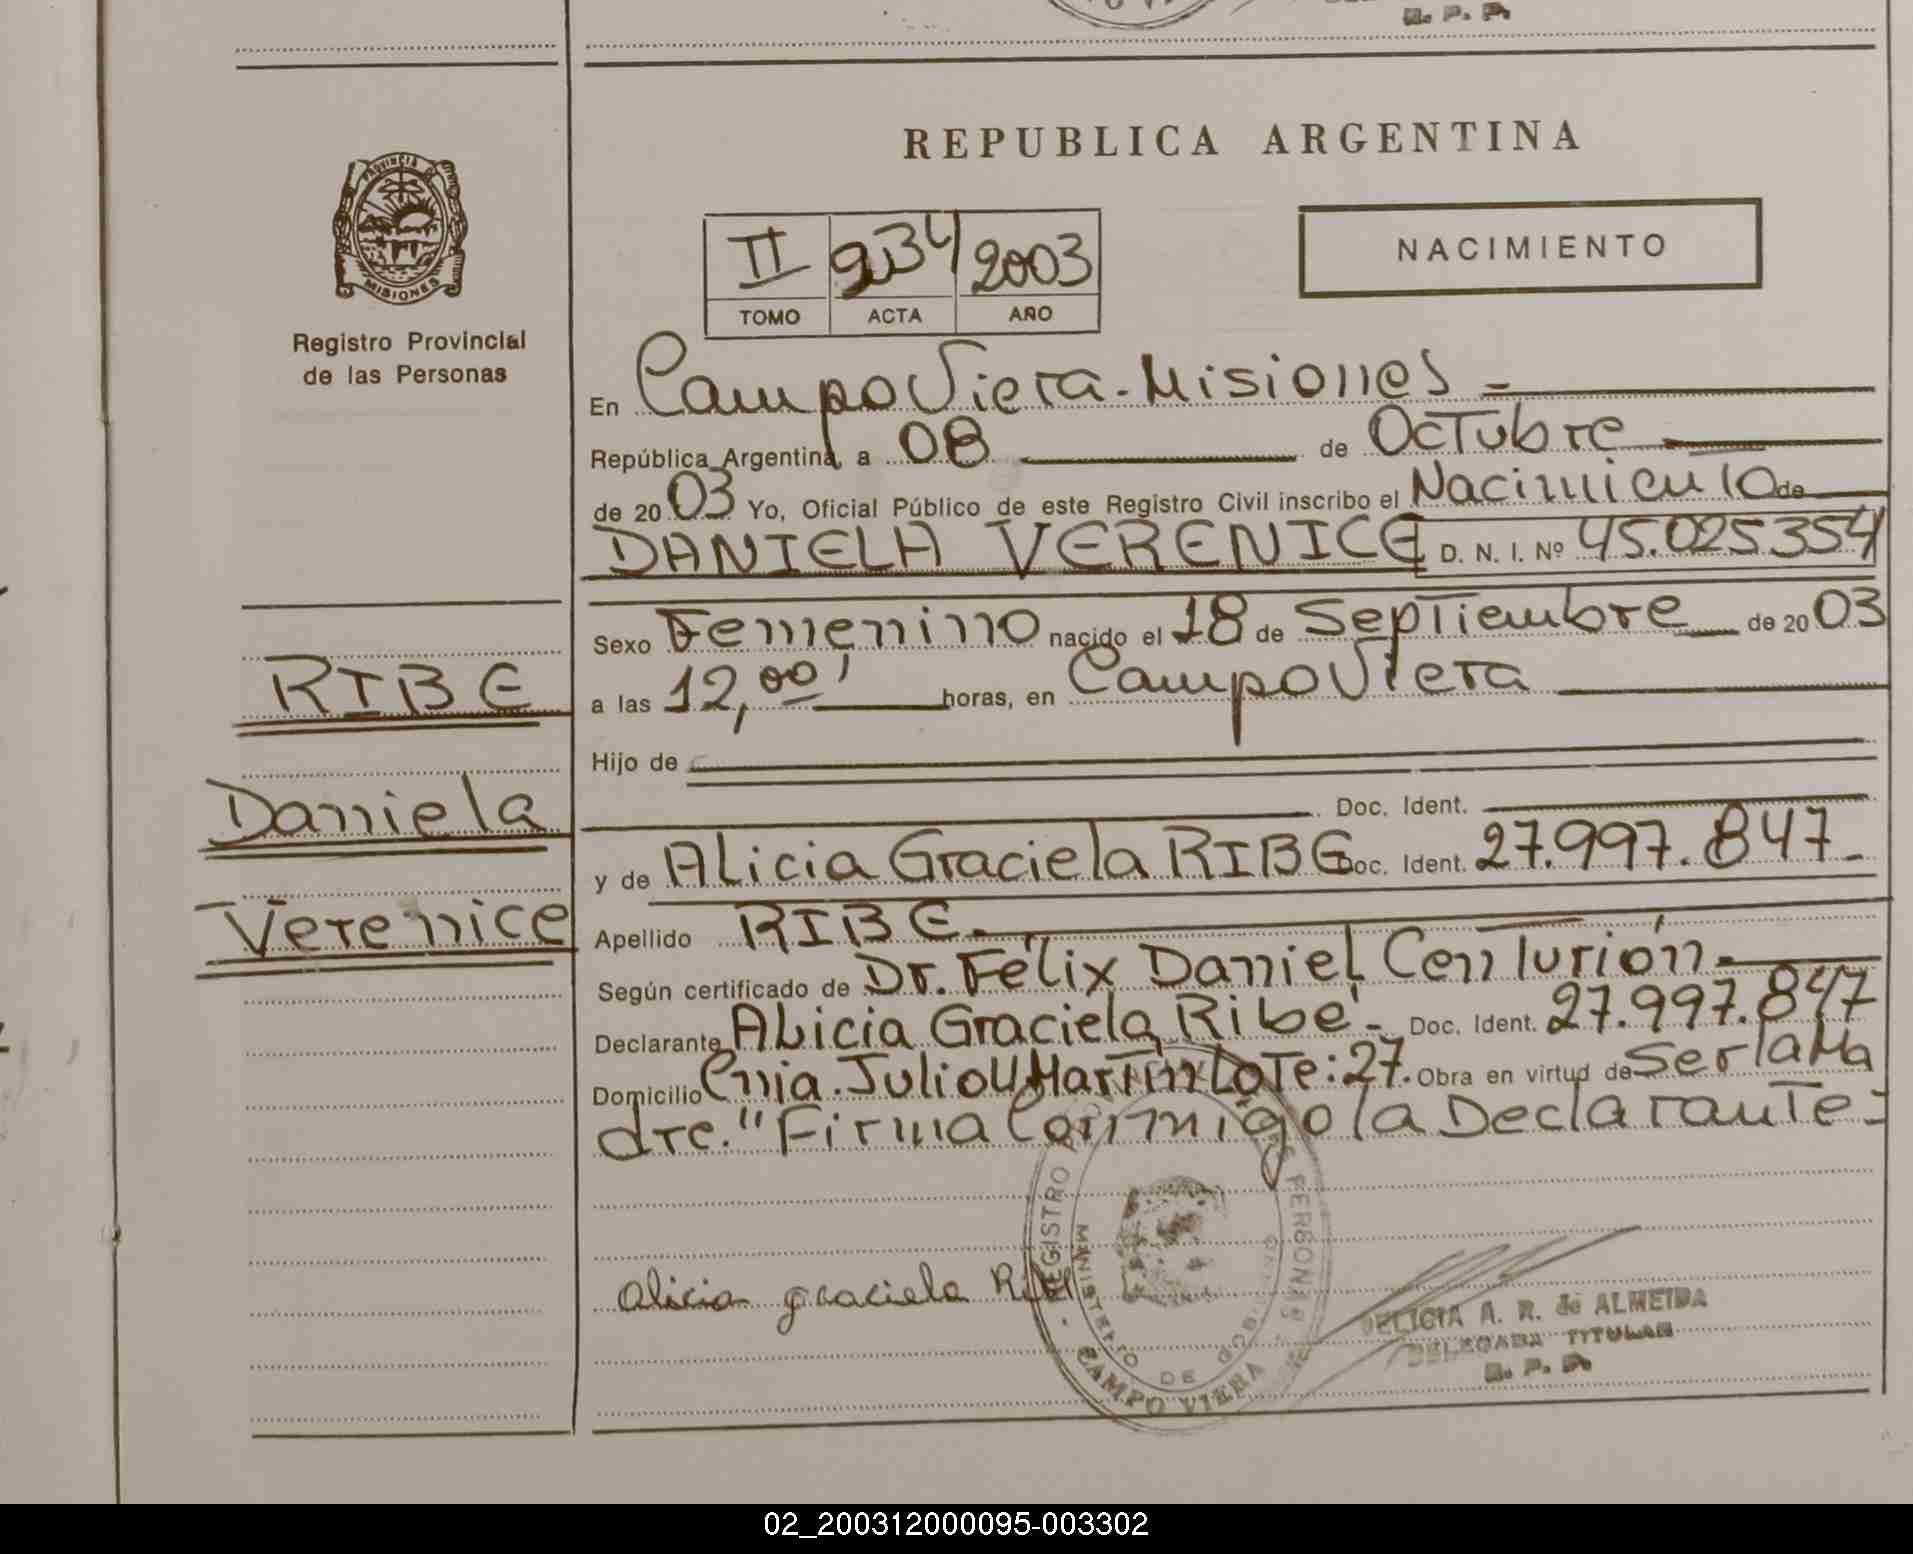 R. P. P.
REPUBLICA ARGENTINA
PROVINCIA DE
MISIONES
Registro Provincial
de las Personas
II 234 2003
TOMO ACTA AÑO
NACIMIENTO
En Campo Viera - Misiones =
República Argentina, a 08 de Octubre
de 20 03 Yo, Oficial Público de este Registro Civil inscribo el Nacimiento de
DANIELA VERENICE D. N. I. Nº 45.025354
Sexo Femenino nacido el 18 de Septiembre de 20 03
RIBE
a las 12,00' horas, en Campo Viera
Hijo de
Doc. Ident.
Daniela
y de Alicia Graciela RIBE Doc. Ident. 27.997.847-
Verenice
Apellido RIBE.
Según certificado de Dr. Félix Daniel Centurión.
Declarante Alicia Graciela Ribe'- Doc. Ident. 27.997.847
Domicilio Cnia. Julio U Martin Lote: 27. Obra en virtud de Ser la Ma
dre." Firma Conmigo la Declarante=
alicia graciela Ribe
REGISTRO PERSONAS
MINISTERIO DE GOB.
CAMPO VIERA
DELICIA A. R. de ALMEIDA
DELEGADA TITULAR
R. P. P.
02_200312000095-003302